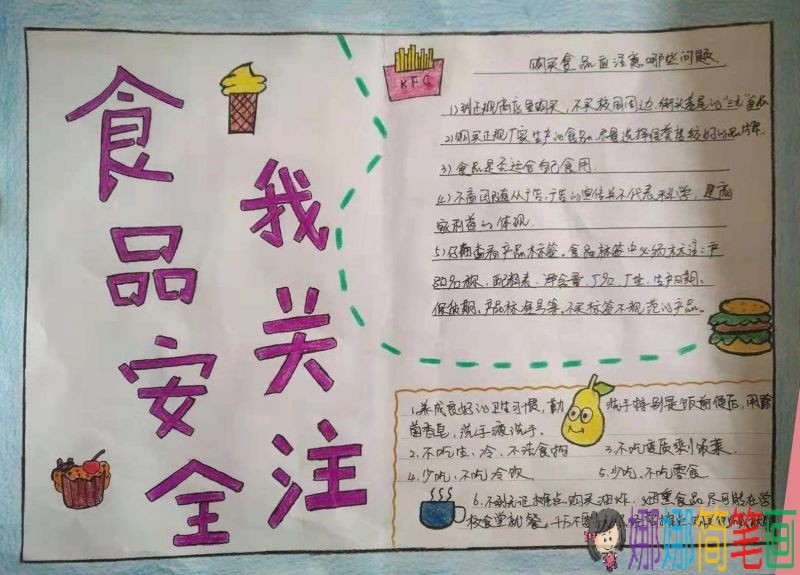 食品安全
我关注
KFC
购买食品应注意哪些问题
1)到正规商店里购买,不买校园周边、街头巷尾的"三无"食品
2)购买正规厂家生产的食品,尽量选择信誉度较好的品牌.
3)食品是否适合自己食用.
4)不盲目随从广告,广告的宣传并不代表科学,是商
家利益的体现.
5)仔细查看产品标签。食品标签中必须标注:产
品名称、配料表、净含量、厂名、厂址、生产日期、
保质期、产品标准号等。不买标签不规范的产品。
1.养成良好的卫生习惯,勤洗手特别是饭前便后,用除
菌香皂,洗手液洗手.
2.不吃生、冷、不洁食物
3.不吃变质剩饭菜.
4.少吃、不吃冷饮
5.少吃、不吃零食
6.不到无证摊点购买油炸、烟熏食品尽可能在学
校食堂就餐。千万不
娜娜简笔画